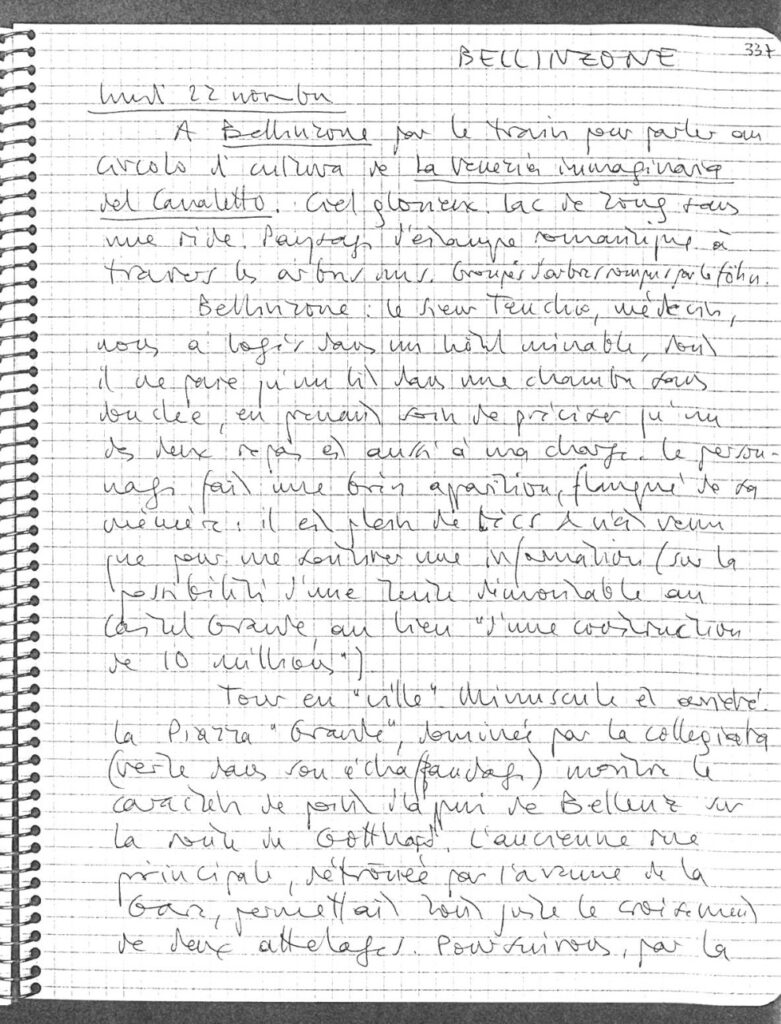 BELLINZONE
337
lundi 22 novembre
A Bellinzone par le train pour parler au
Circolo d'cultura de La Venezia immaginaria
del Canaletto. Ciel glorieux. Lac de Zoug sans
une ride. Paysage d'estampe romantique à
travers les arbres nus. Groupes d'arbres rompus par le föhn.
Bellinzone : le sieur, médecin,
nous a logés dans un hôtel minable, dont
il ne paie qu'un lit dans une chambre sans
douche, en prenant soin de préciser qu'un
des deux repas est aussi à ma charge. Le person-
nage fait une brève apparition, flanqué de sa
mémère : il est plein de tics & n'est venu
que pour me soutirer une information (sur la
possibilité d'une tente démontable au
Castel Grande, au lieu "d'une construction
de 10 millions")
Tour en "ville". Minuscule et arriéré.
La Piazza "Grande", dominée par la collegiata
(verte dans son échaffaudage) montre le
caractère de point d'appui de Bellenz sur
la route du Gotthard. L'ancienne rue
principale, détrônée par l'avenue de la
Gare, permettait tout juste le croisement
de deux attelages. Poursuivons, par la